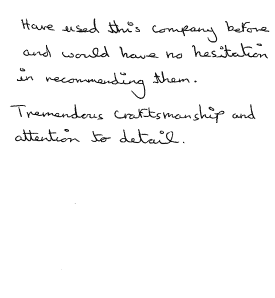 Have used this company before
and would have no hesitation
in recommending them.
Tremendous craftsmanship and
attention to detail.